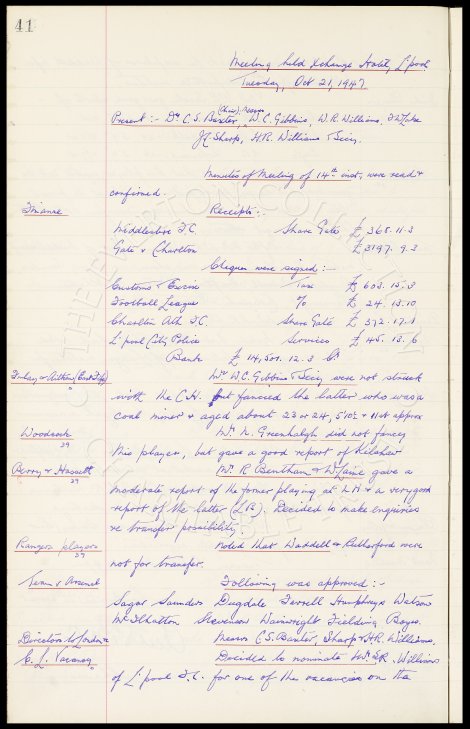 41
Meeting held Xchange Hotel, L'pool
Tuesday, Oct 21, 1947
(Chair) Messrs
Present :- Dr C.S. Baxter, W.C. Gibbins, W.R. Williams,
J. Sharp, H.R. Williams & Secy.
Minutes of Meeting of 14th inst. were read &
confirmed.
Finance Receipts :-
Middlesbro F.C. Share Gate £ 365.11.3
Gate v Charlton £ 3197.9.3
Cheques were signed :-
Customs & Excise Tax £ 603.15.3
Football League % £ 24.13.10
Charlton Ath F.C. Share Gate £ 572.17.1
L'pool City Police Services £ 145.13.6
Bank £ 14,501.12.3 Cr
Finlay & Aitken (East Fife) Mr W.C. Gibbins & Secy were not struck
with the C.H. but fancied the latter who was a
coal miner & aged about 23 or 24, 5'10½ & 11st approx
Woodcock Mr N. Greenhalgh did not fancy
this player, but gave a good report of Kilshaw
Berry & Hassett Mr R. Bentham & W. Laine gave a
moderate report of the former playing at L.H & a very good
report of the latter (L.B). Decided to make enquiries
re transfer possibility.
Rangers players Noted that Waddell or Rutherford were
not for transfer.
Team v Arsenal Following was approved :-
Sagar Saunders Dugdale Farrell Humphreys Watson
McIlhatton Stevenson Wainwright Fielding Boyes.
Directors to London Messrs C.S. Baxter, Sharp & H.R. Williams.
C.L. Vacancy Decided to nominate Mr S.R. Williams
of L'pool F.C. for one of the vacancies on the